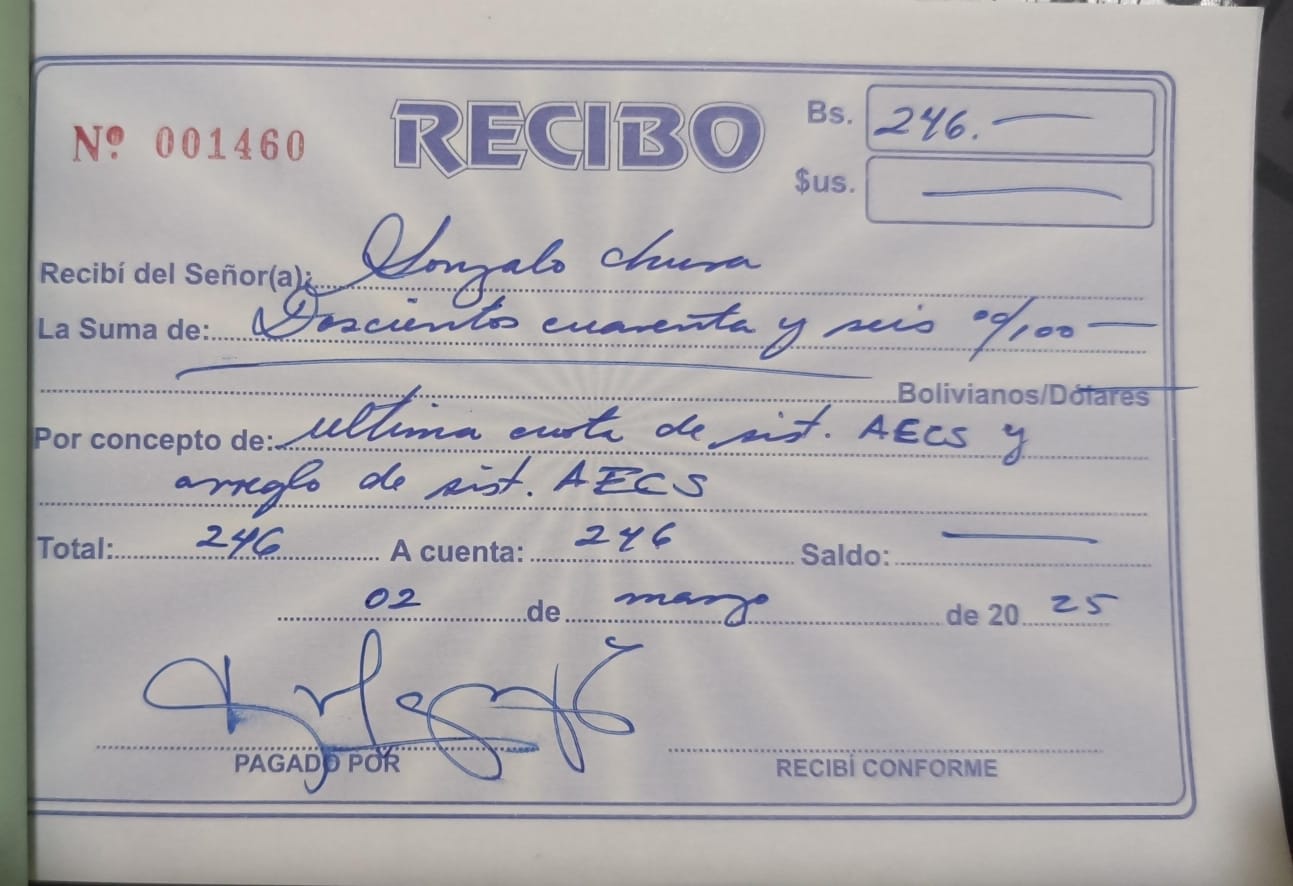 Nº 001460
RECIBO
Bs. 246.
$us.
Recibí del Señor(a): Gonzalo Chura
La Suma de: Doscientos cuarenta y seis 00/100
Bolivianos/Dólares
Por concepto de: ultima cuota de sist. AECS y
arreglo de sist. AECS
Total: 246 A cuenta: 246 Saldo:
02 de marzo de 20 25
PAGADO POR
RECIBÍ CONFORME